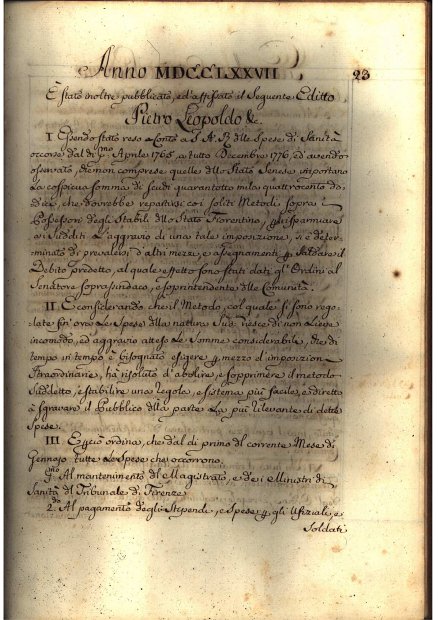 Anno MDCCLXXVII
23
È stato inoltre pubblicato, ed affissato il Seguente Editto
Pietro Leopoldo &c.
I. Essendo stato reso Conto a S. A. R. delle Spese di Sanità
occorse dal dì p.mo Aprile 1765, a tutto Decembre 1776, ed avendo
osservato, che non comprese quelle dllo Stato Senese importano
La cospicua somma di Scudi quarantotto mila quattrocento do-
dici, che dovrebbe repartirsi coi soliti Metodi sopra i
Possessori degli Stabili dllo Stato Fiorentino, p risparmiare
ai Sudditi L'aggravio di una tale imposizione, si è deter-
minato di prevalersi d'altri mezzi, e assegnamenti p Saldare il
Debito predetto, al quale effetto sono stati dati gl'Ordini al
Senatore Soprasindaco, e Soprintendente dlle Comunità.
II. E considerando che il Metodo, col quale si sono rego-
late fin' ora Le Spese dlla natura Sud.a riesce di non Lieve
incomodo, ed aggravio atteso Le Somme considerabili, che di
tempo in tempo è bisognato esigere p mezzo d'imposizioni
Straordinarie, ha risoluto d'abolire, e sopprimere il metodo
Suddetto, e stabilire una regola, e sistema più facile, e diretto
a sgravare il Pubblico dlla parte La più rilevante di dette
Spese.
III. E perciò ordina, che dal dì primo dl corrente Mese di
Gennajo tutte Le Spese che occorrono
p.mo Al mantenimento dl Magistrato, e dei Ministri di
Sanità dl Tribunale di Firenze
2.do Al pagamento degli Stipendi, e Spese p gli Ufiziali, e
Soldati